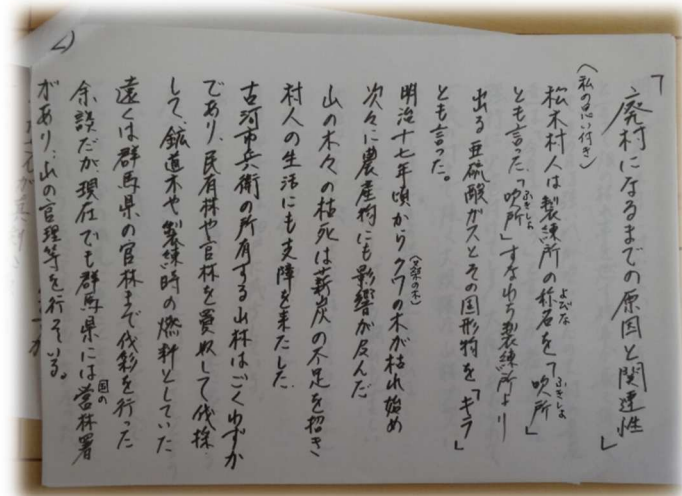 「廃村になるまでの原因と関連性」
(私の思い付き)
松木村人は製練所の称名を「吹所」
よびな
ふきしょ
とも言った「吹所」すなわち製練所より
ふきしょ
出る亜硫酸ガスとその固形物を「キラ」
とも言った。
明治十七年頃からクワの木が枯れ始め
(桑の木)
次々に農産物にも影響が及んだ
山の木々の枯死は薪炭の不足を招き
村人の生活にも支障を来たした
古河市兵衛の所有する山林はごくわずか
であり、民有林や官林を買収して伐採
して、鉱道木や製練時の燃料としていた
遠くは群馬県の官林まで伐彩を行った
余談だが、現在でも群馬県には営林署
国の
があり、山の官理等を行っている。